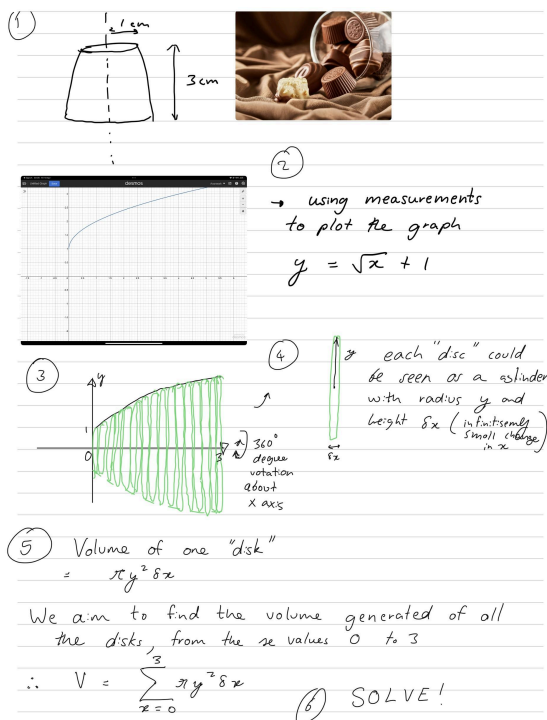 1
1 cm
3 cm
desmos
2
→ using measurements
to plot the graph
y = √x + 1
3
y
1
0
3
x
360°
degree
rotation
about
x axis
4
y
δx
each "disc" could
be seen as a cylinder
with radius y and
height δx (infinitisemly
small change
in x)
5 Volume of one "disk"
= πy² δx
We aim to find the volume generated of all
the disks, from the x values 0 to 3
∴ V = 3 Σ x = 0 πy² δx
6 SOLVE!